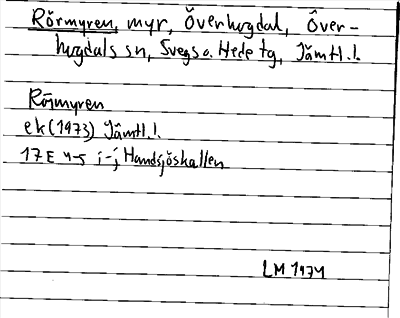 Rörmyren, myr, Överhogdal, Över-
hogdals sn, Svegs o. Hede tg, Jämtl. l.
Rörmyren
ek (1973) Jämtl. l.
17E 4-5 i-j Handsjöskallen
LM 1974